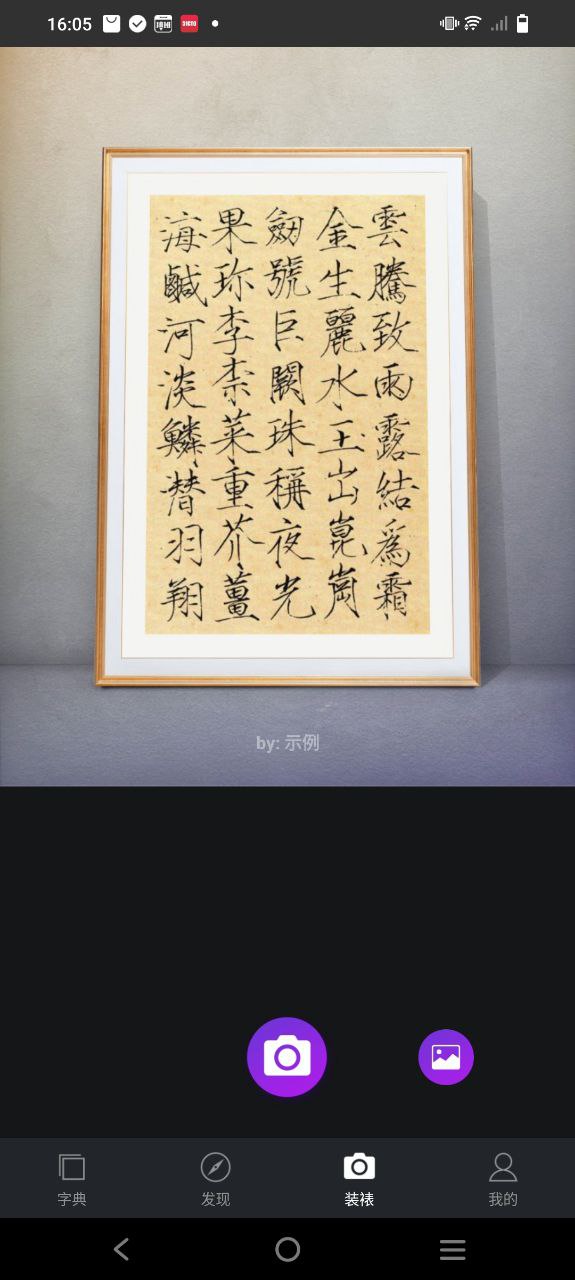 16:05
雲騰致雨露結爲霜
金生麗水玉出崑崗
劒號巨闕珠稱夜光
果珎李柰菜重芥薑
海鹹河淡鱗潛羽翔
by: 示例
字典
发现
装裱
我的